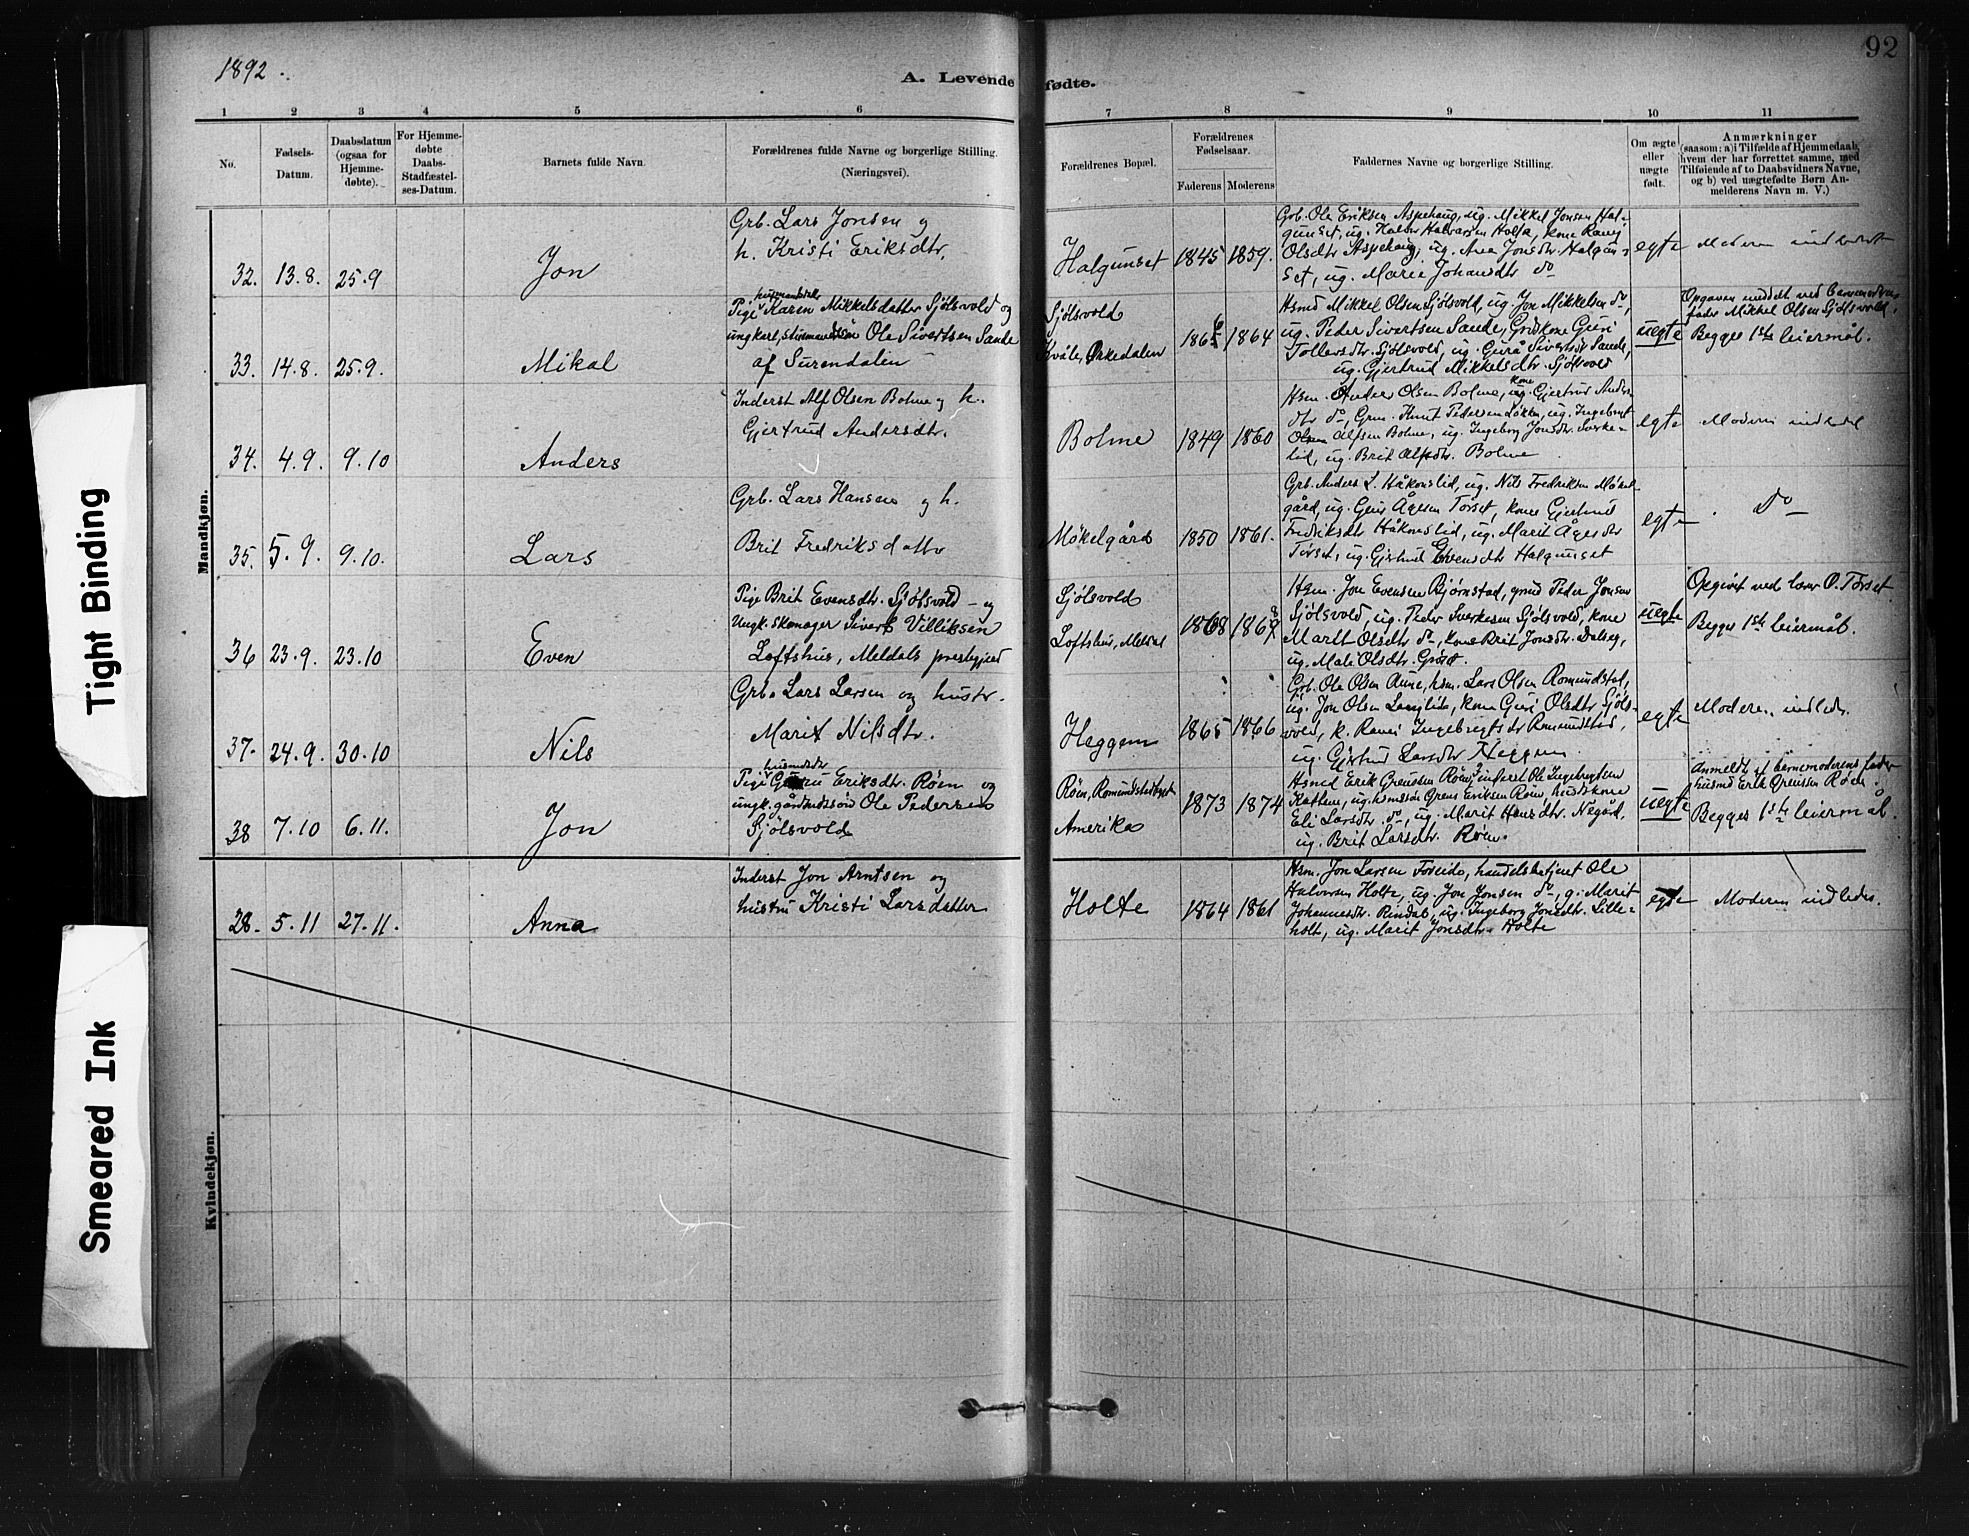 1892.
A. Levende fødte.
92
1 2 3 4 5 6 7 8 9 10 11
No.
Fødsels-
Datum.
Daabsdatum
(ogsaa for
Hjemme-
døbte).
For Hjemme-
døbte
Daabs-
Stadfæstel-
ses-Datum.
Barnets fulde Navn.
Forældrenes fulde Navne og borgerlige Stilling.
(Næringsvei).
Forældrenes Bopæl.
Forældrenes
Fødselsaar.
Faderens Moderens
Faddernes Navne og borgerlige Stilling.
Om ægte
eller
uægte
født.
Anmærkninger
(saasom: a) i Tilfælde af Hjemmedaab,
hvem der har forrettet samme, med
Tilføiende af to Daabsvidners Navne,
og b) ved uægtefødte Børn An-
melderens Navn m. V.)
Mandkjøn.
32. 13.8. 25.9 Jon
Grb. Lars Jonsen og
h. Kristi Eriksdtr.
Halgunset 1845 1859.
Grb. Ole Eriksen Aspehaug, ug. Mikkel Jonsen Hal-
gunset, ug. Halvor Halvorsen Holte, kone Ranei
Olsdtr Aspehaug, ug. Ane Jonsdtr. Halgun-
set, ug. Marie Johansdtr do
egte
Moderen indledet
33. 14.8. 25.9. Mikal
Pige Karen Mikkelsdatter Sjølsvold og
ungkarl, Ole Sivertsen Sande
af Surendalen
Sjølsvold
Kvåle, Orkedalen
1864
Hsmd Mikkel Olsen Sjølsvold, ug. Jon Mikkelsen do,
ug. Peder Sivertsen Sande, Grdskone Guri
Tollevsdtr. Sjølsvold, ug. Guru Sivertsdtr Sande,
ug. Gjertrud Mikkelsdtr. Sjølsvold
uegte
Opgaven meddelt ved barnemoderens
fader Mikkel Olsen Sjølsvold.
Begges 1ste leiermål.
34. 4.9. 9.10 Anders
Inderst Alf Olsen Bolme og h.
Gjertrud Andersdtr.
Bolme 1849 1860
Hsm. Anders Olsen Bolme, kone Gjertrud Anders-
dtr do, Grm. Knut Pedersen Løkken, ug. Ingebrigt
Alfsen Bolme, ug. Ingeborg Jonsdtr. Sverke-
lid, ug. Brit Alfsdtr. Bolme
egte
Moderen indledet
35. 5.9. 9.10. Lars
Grb. Lars Hansen og h.
Brit Fredriksdatter
Møkelgård 1850 1861.
Grb. Anders L. Håkonslid, ug. Nils Fredriksen Møkel-
gård, ug. Ågesen Tørset, kone Gjertrud
Fredriksdtr Håkonslid, ug. Marit Ågesdtr
Tørset, ug. Gjertrud Evensdtr Halgunset
egte
do
36 23.9. 23.10 Even
Pige Brit Evensdtr. Sjølsvold og
Ungk. skomager Sivert Villiksen
Loftshus, Meldals prestegjeld
Sjølsvold
Loftshus, Meldal
1868
Hsm. Jon Evensen Bjørnstad, grmd Peder Jonsen
Sjølsvold, ug. Peder Sverkesen Sjølsvold, kone
Marit Olsdtr do, kone Brit Jonsdtr. Dalseg,
ug. Mali Olsdtr. Grøset.
uegte
Opgivet ved lærer O. Tørset.
Begges 1ste leiermål.
37. 24.9. 30.10 Nils
Grb. Lars Larsen og hustr.
Marit Nilsdtr.
Heggem 1865 1866
Grb. Ole Olsen Aune, hsm. Lars Olsen Romundstad,
ug. Jon Olsen Langlide, kone Guri Olsdtr Sjøls-
vold, k. Ranei Ingebrigtsdtr Romundstad,
ug. Gjertrud Larsdtr Heggem
egte
Moderen indledt.
38 7.10 6.11. Jon
Pige Guru Eriksdtr. Røen og
ungk. gårdmdssøn Ole Pedersen
Sjølsvold
Røen, Romundstadbygd
Amerika
1873 1874
Hsmd Erik Greussen Røen, inderst Ole Ingebrigtsen
Kattem, ug. hsmssøn Greus Eriksen Røen, hmdskone
Eli Larsdtr. do, ug. Marit Hansdtr. Negård,
ug. Brit Larsdtr. Røen.
uegte
Anmeldt af barnemoderens fader
husmd Erik Greussen Røen.
Begges 1ste leiermål.
Kvindekjøn.
28. 5.11 27.11. Anna
Inderst Jon Arntsen og
hustru Kristi Larsdatter
Holte 1864 1861
Hsm. Jon Larsen Foseide, handelsbetjent Ole
Halvorsen Holte, ug. Jon Jonsen do, g. Marit
Johannesdtr. Rindal, ug. Ingeborg Jonsdtr. Lille-
holt, ug. Marit Jonsdtr. Holte
egte
Moderen indledet.
Tight Binding
Smeared Ink